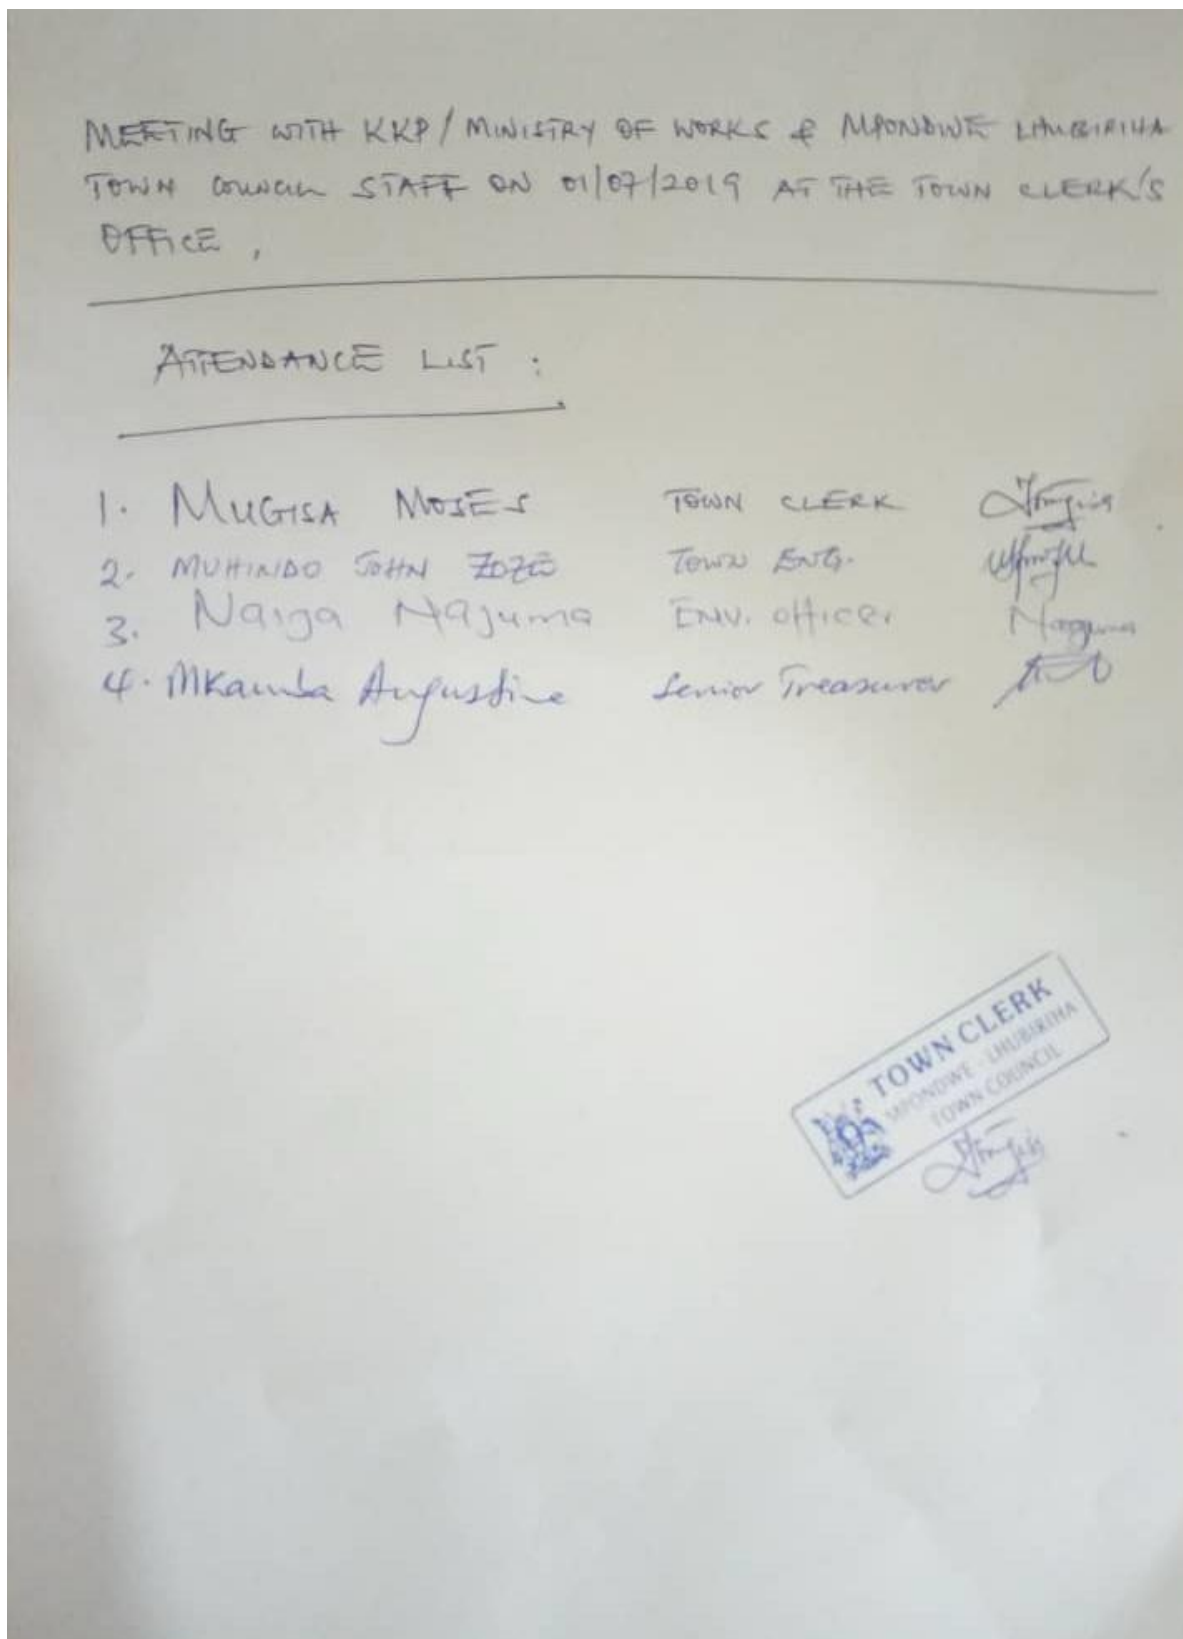 MEETING WITH KKP / MINISTRY OF WORKS & MPONDWE LHUBIRIHA
TOWN COUNCIL STAFF ON 01/07/2019 AT THE TOWN CLERK'S
OFFICE,
ATTENDANCE LIST :
1. MUGISA MOSES TOWN CLERK
2. MUHINDO JOHN ZOZE TOWN ENG.
3. Naiga Najuma ENV. officer Najuma
4. Mkamba Augustine Senior Treasurer
TOWN CLERK
MPONDWE - LHUBIRIHA
TOWN COUNCIL